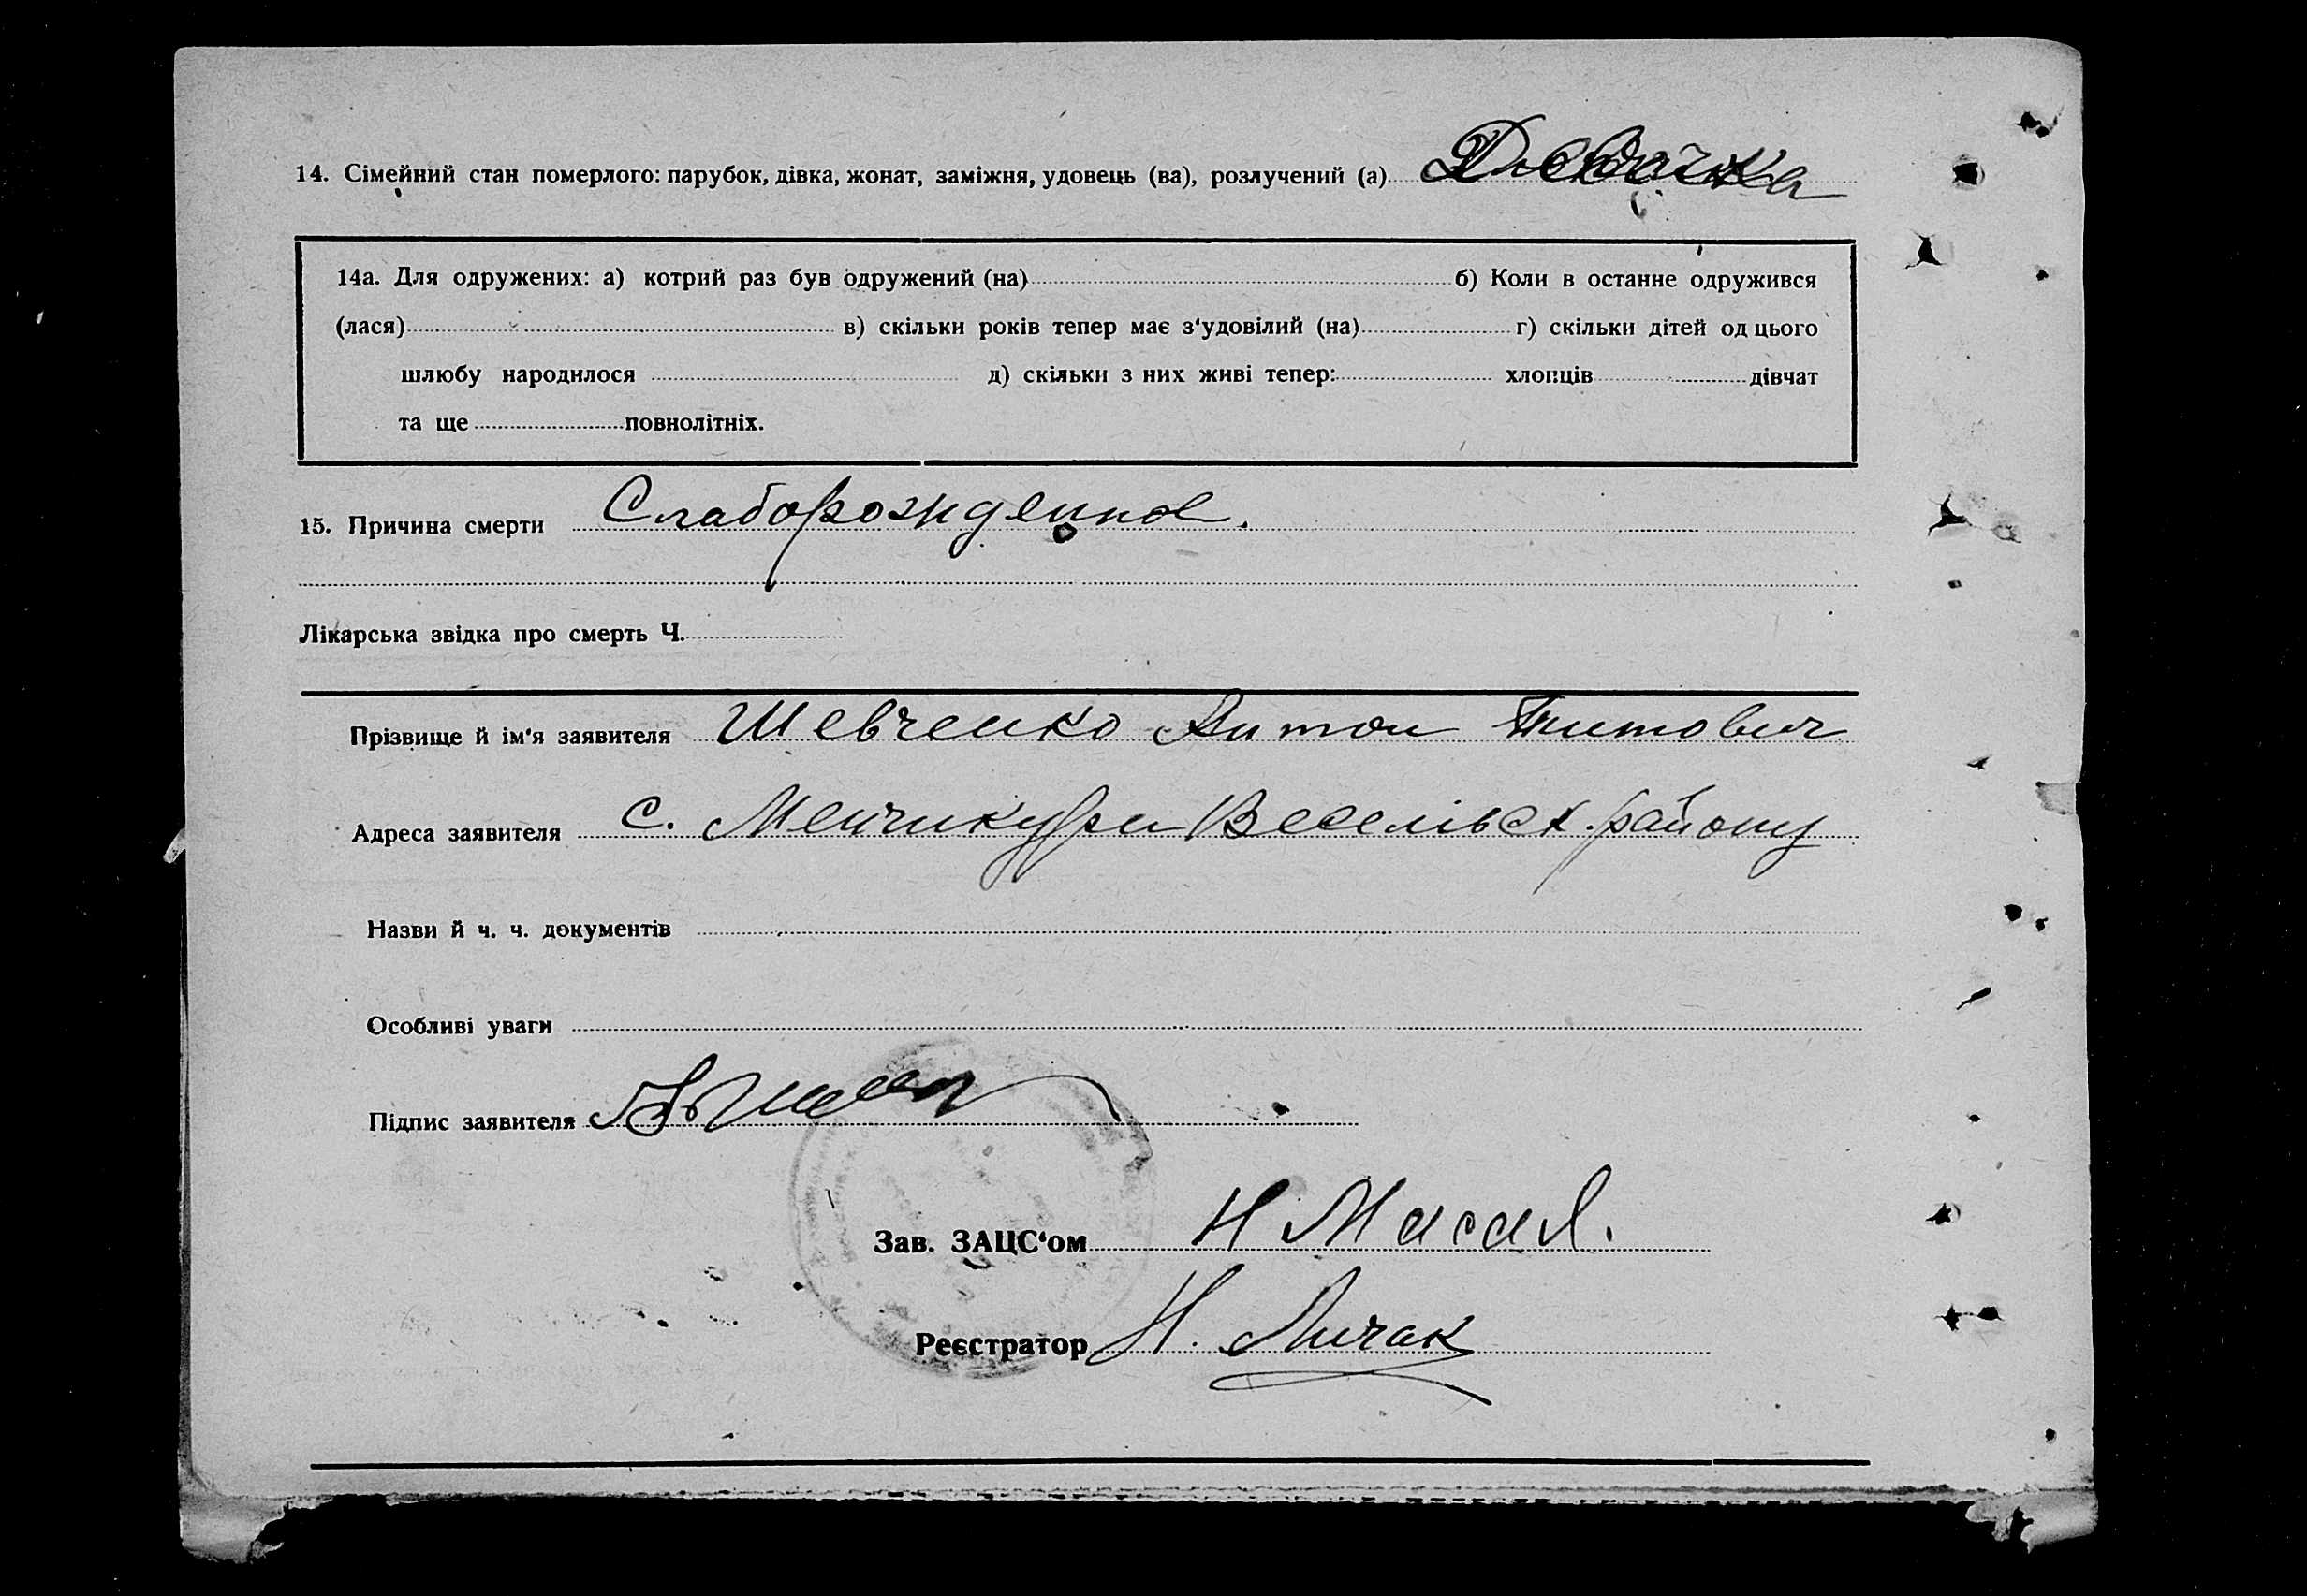 14. Сімейний стан померлого: парубок, дівка, жонат, заміжня, удовець (ва), розлучений (а)
14а. Для одружених: а) котрий раз був одружений (на) б) Коли в останне одружився
(лася) в) скільки років тепер має з‘удовілий (на) г) скільки дітей од цього
шлюбу народилося д) скільки з них живі тепер: хлопців дівчат
та ще повнолітніх.
15. Причина смерти Слаборожденное.
Лікарська звідка про смерть Ч.
Прізвище й ім‘я заявителя Шевченко Антон Титович
Адреса заявителя с. Менчикури Веселівск. району
Назви й ч. ч. документів
Особливі уваги
Підпис заявителя
Зав. ЗАЦС‘ом Н Масал.
Реєстратор Н. Личак